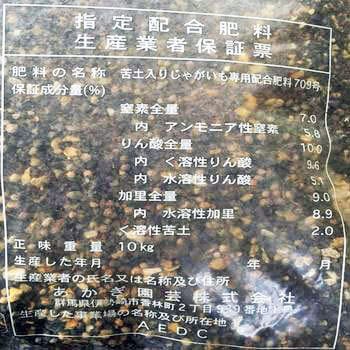 指定配合肥料
生産業者保証票
肥料の名称 苦土入りじゃがいも専用配合肥料709号
保証成分量(%)
窒素全量 7.0
内 アンモニア性窒素 5.8
りん酸全量 10.0
内 く溶性りん酸 9.6
内 水溶性りん酸 5.1
加里全量 9.0
内 水溶性加里 8.9
く溶性苦土 2.0
正味重量 10kg
生産した年月 年 月
生産業者の氏名又は名称及び住所
あかぎ園芸株式会社
群馬県伊勢崎市香林町2丁目939番地
生産した事業場の名称及び所在地
AEDC